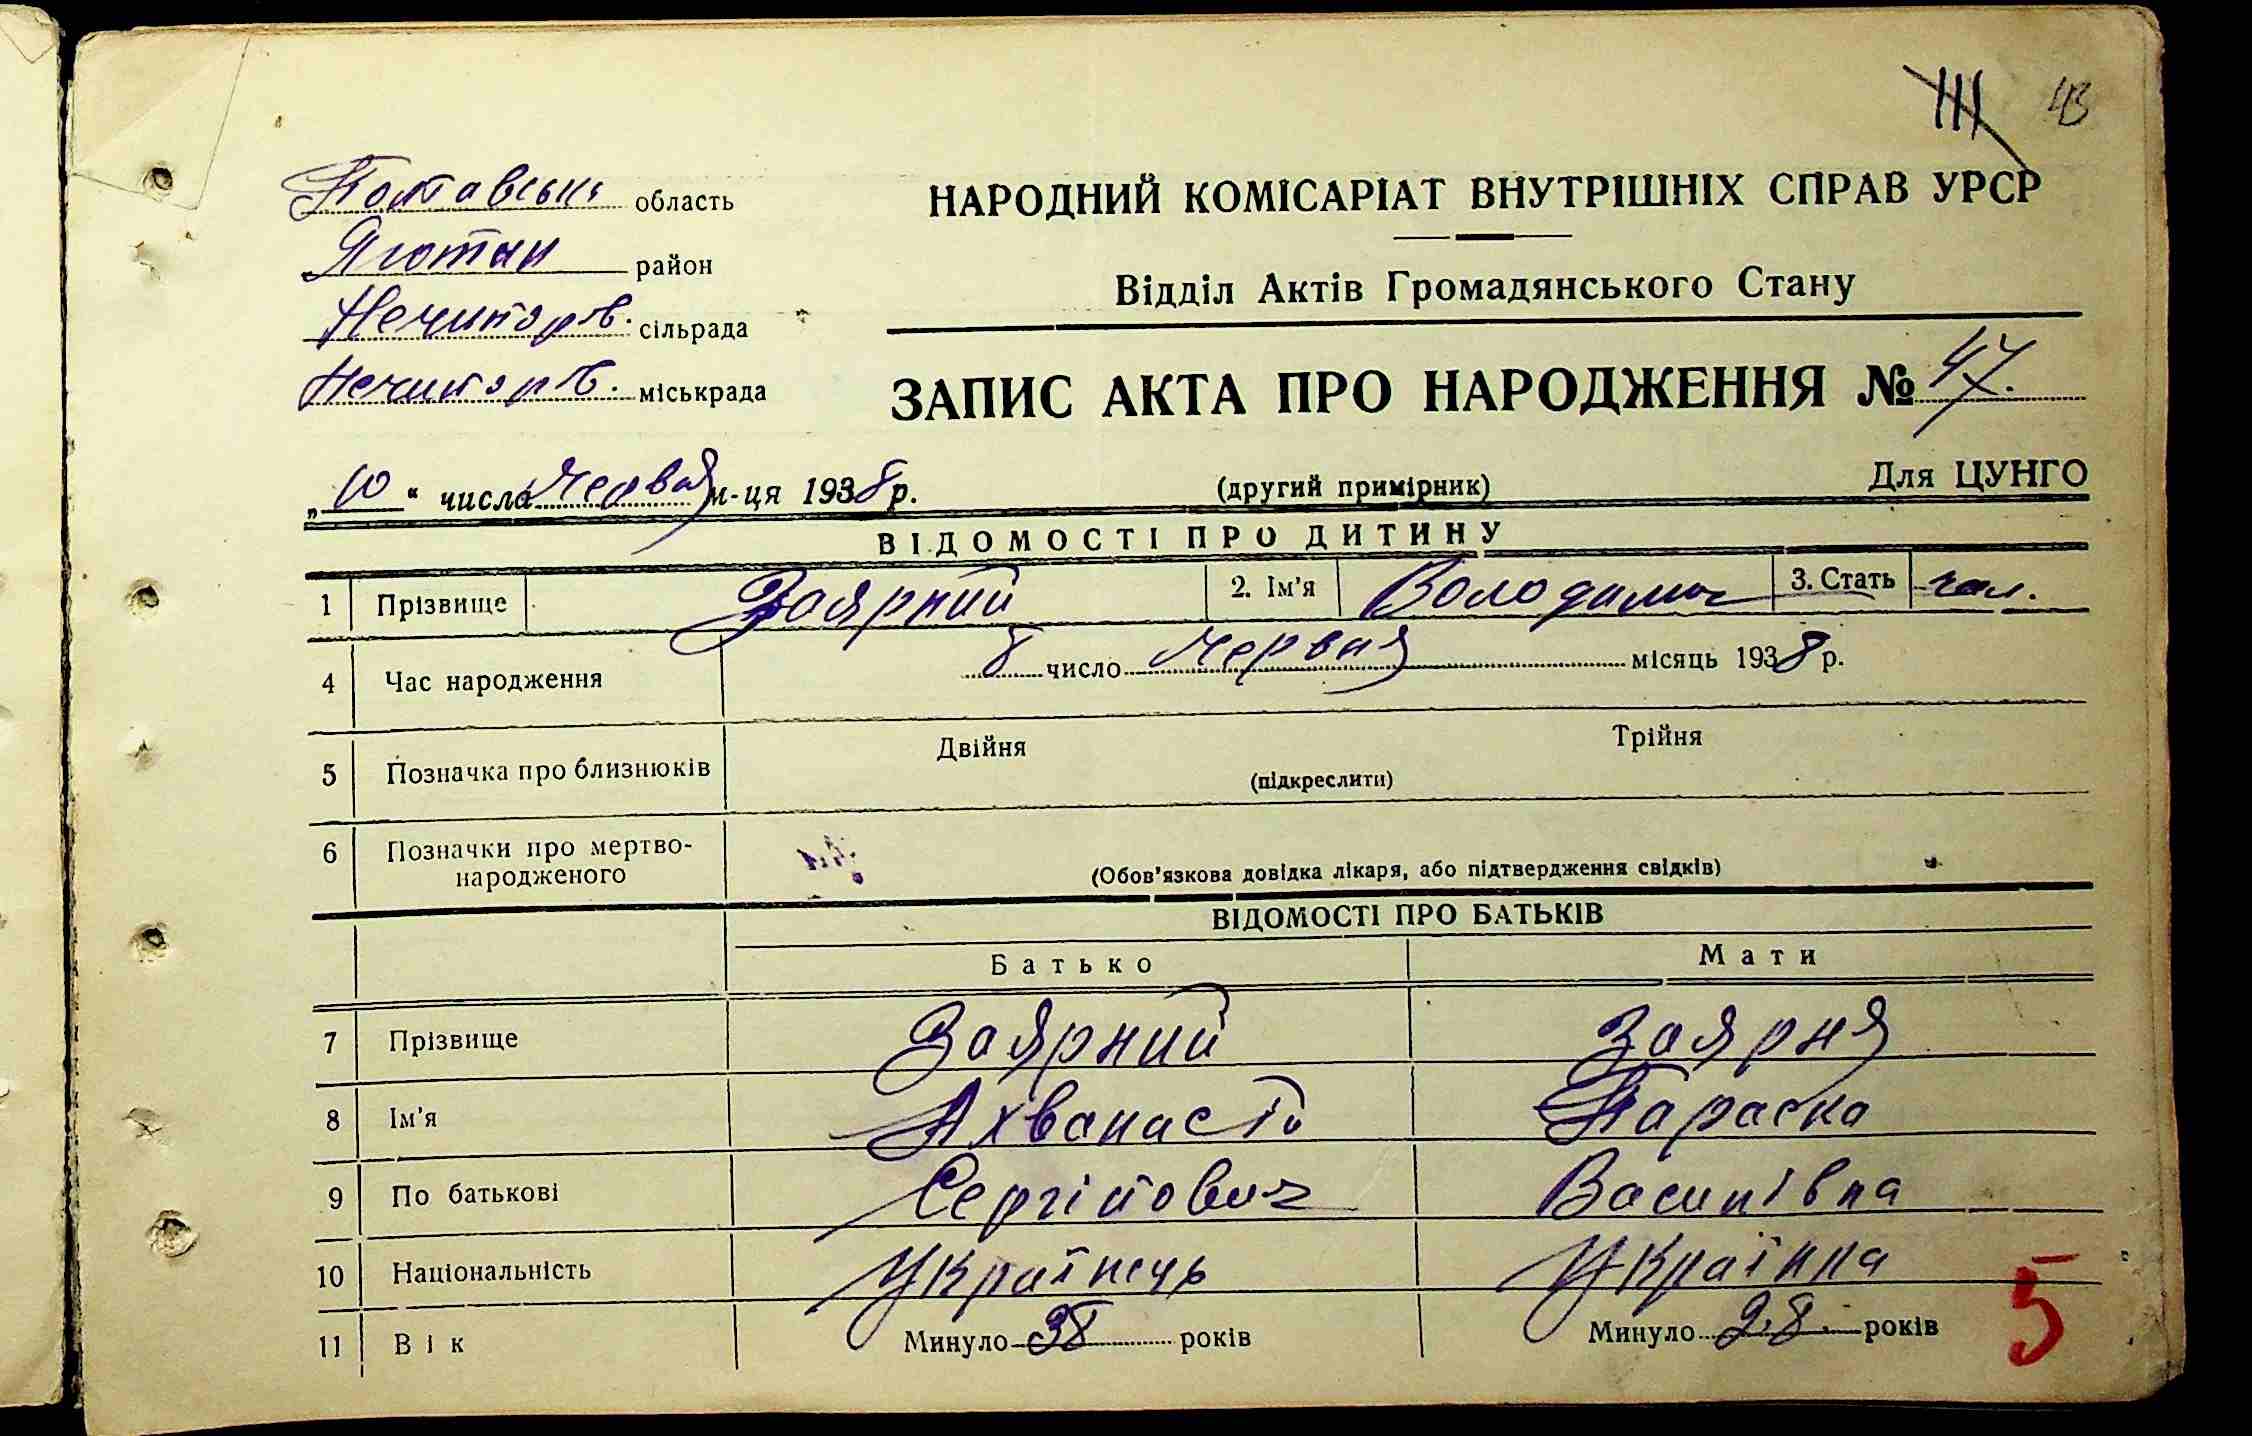 111 43
Полтавська область
Яготин район
Нечипорів. сільрада
Нечипорів. міськрада
НАРОДНИЙ КОМІСАРІАТ ВНУТРІШНІХ СПРАВ УРСР
Відділ Актів Громадянського Стану
ЗАПИС АКТА ПРО НАРОДЖЕННЯ № 47.
„10“ числа червня м-ця 1938 р.
(другий примірник)
Для ЦУНГО
ВІДОМОСТІ ПРО ДИТИНУ
1 Прізвище Заярний 2. Ім'я Володимир 3. Стать чол.
4 Час народження 8 число червня місяць 1938 р.
5 Позначка про близнюків Двійня Трійня
(підкреслити)
6 Позначки про мертво-
народженого
(Обов'язкова довідка лікаря, або підтвердження свідків)
ВІДОМОСТІ ПРО БАТЬКІВ
Батько Мати
7 Прізвище Заярний Заярня
8 Ім'я Ахванасій Параска
9 По батькові Сергійович Василівна
10 Національність Українець Українка
11 Вік Минуло 38 років Минуло 28. років
5